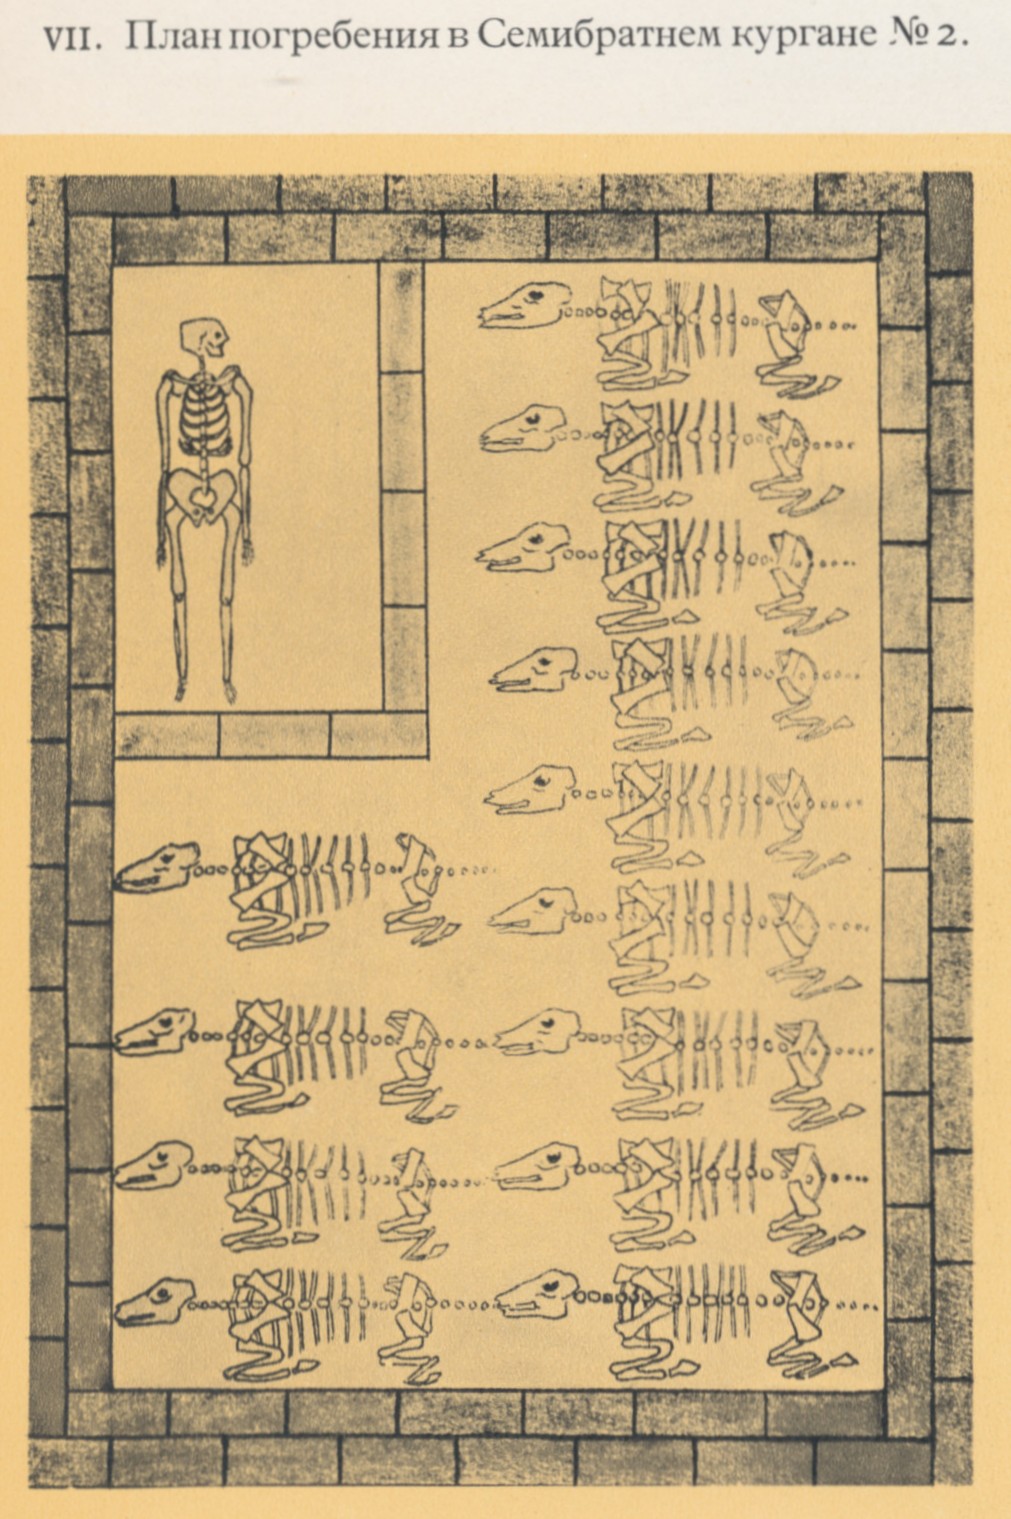 VII. План погребения в Семибратнем кургане № 2.